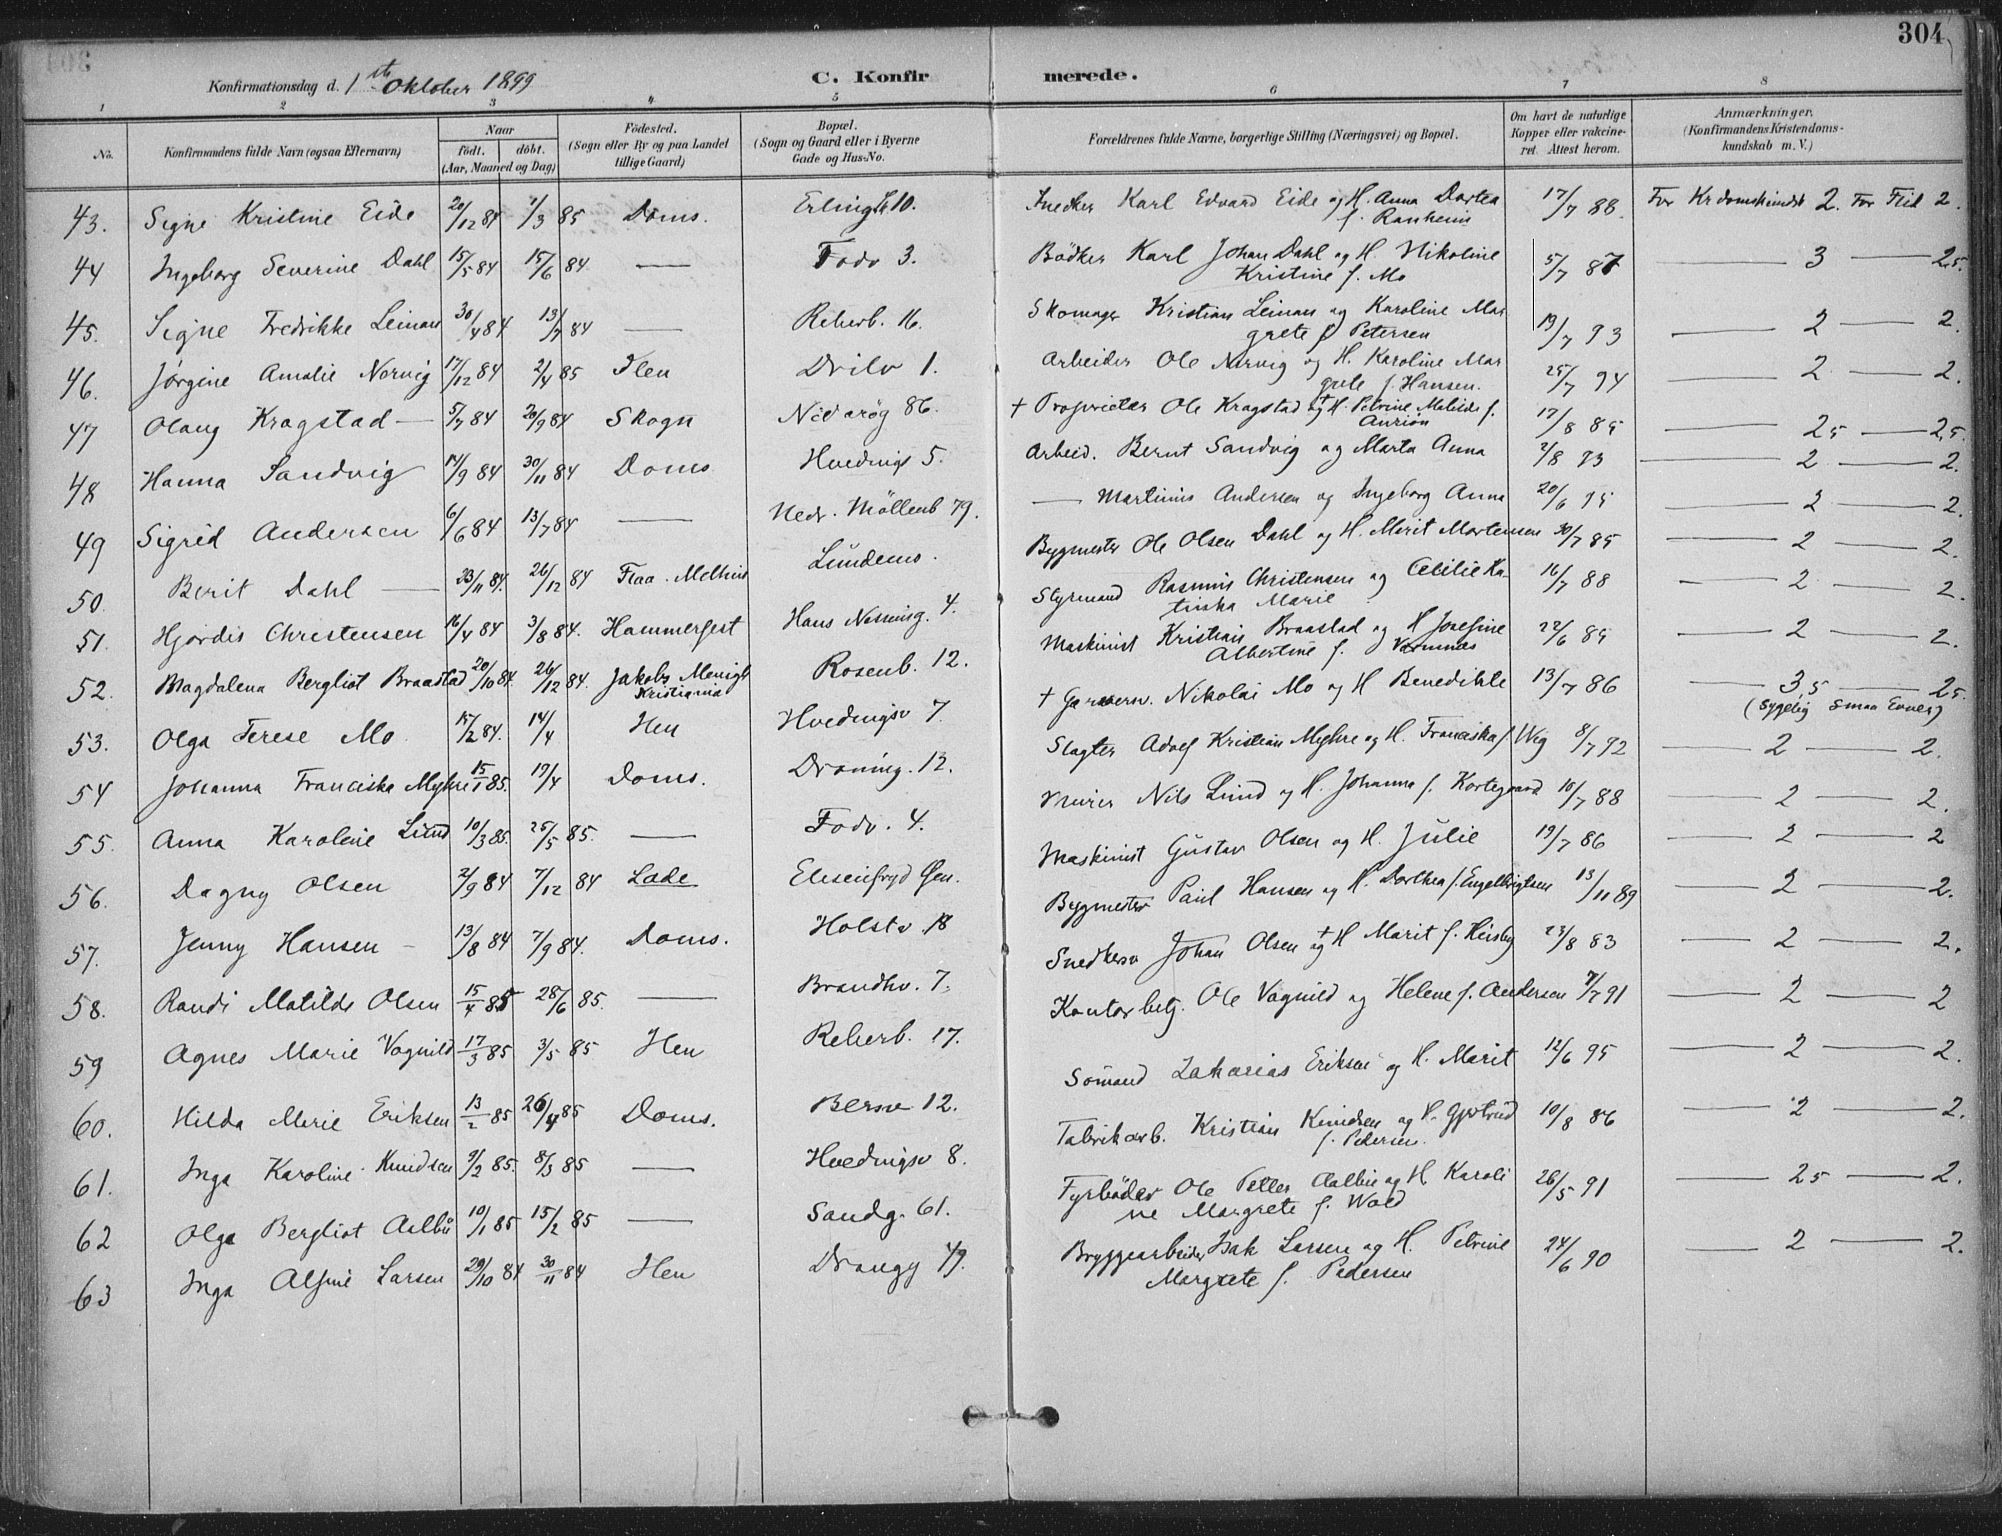 304
Konfirmationsdag d. 1ste Oktober 1899
C. Konfirmerede.
1 2 3 4 5 6 7 8
No. Konfirmandens fulde Navn (ogsaa Efternavn) Naar födt. döbt. (Aar, Maaned og Dag) Födested. (Sogn eller By og paa Landet tillige Gaard) Bopæl. (Sogn og Gaard eller i Byerne Gade og Hus-No. Forældrenes fulde Navne, borgerlige Stilling (Næringsvei) og Bopæl. Om havt de naturlige Kopper eller vakcineret. Attest herom. Anmærkninger. (Konfirmandens Kristendomskundskab m. V.)
43. Signe Kristine Eide 20/12 84 1/3 85 Doms. Erlings 10. Snedker Karl Edvard Eide og H. Anna Dortea 17/7 88 For Krdomskundsk 2. For Flid 2.
f. Ranheim
44 Ingeborg Severine Dahl 15/5 84 15/6 84 — Fodv 3. Bödker Karl Johan Dahl og H. Nikoline 5/7 87 — 3 — 2,5.
Kristine f. Mo
45. Signe Fredrikke Leiman 30/4 84 13/7 84 — Reherb. 16. Skomager Kristian Leiman og Karoline Mar 19/7 93 — 2 — 2.
grete f. Petersen
46. Jörgine Amalie Nervig 17/12 84 2/4 85 Ilen Drilv 1. Arbeider Ole Nervig og H. Karoline Mar 25/7 94 — 2 — 2.
grete f. Hansen.
47 Olaug Kragstad — 5/7 84 20/9 84 Skogn Nidarög 86. + Proprietær Ole Kragstad og + H. Petrine Matilde f. 17/8 85 — 2 5 — 2,5.
48 Hanna Sandvig 14/9 84 30/11 84 Doms Hvedings 5. Arbeid. Bernt Sandvig og Marta Anna 2/8 93 — 2 — 2.
49 Sigrid Andersen 6/6 84 13/7 84 — Nedr. Möllenb 79. — Martinus Andersen og Ingeborg Anna 20/6 95 — 2 — 2.
50. Berit Dahl — 23/11 84. 26/12 84 Flaa. Melhus Lundemo. Bygmester Ole Olsen Dahl og H. Merit Mortensen 30/7 85 — 2 — 2.
51. Hjördis Christensen 16/4 84 3/8 84. Hammerfest Hans Nissensg. 4. Styrmand Rasmus Christensen og Cecilie Ka- 16/7 88 — 2 — 2.
tinka Marie
52. Magdalena Bergliot Braastad 20/10 84. 26/12 84. Jakobs Menigh Kristiania Rosenb. 12. Maskinist Kristian Braastad og H Josefine 22/6 85 — 2 — 2.
Albertine f. Værnnes
53. Olga Terese Mo 15/2 84. 14/4 Ilen Hvedingsv 7. + Garversv. Nikolai Mo og H Benedikte 13/7 86 — 3,5 — 2 5.
(Sygelig smaa Evner)
54 Johanna Franciska Myhre 15/1 85. 19/4 Doms. Droning. 12. Slagter Adolf Kristian Myhre og H. Franciska f. Wig 8/7 92 — 2 — 2.
55. Anna Karoline Lund 10/3 85. 25/5 85. — Fodv. 4. Murer Nils Lund og H. Johanna f. Kortegaard 10/7 88 — 2 — 2.
56. Dagny Olsen 2/9 84 7/12 84 Lade Elisenfryd Öen. Maskinist Gustav Olsen og H. Julie 19/7 86 — 2 — 2
57. Jenny Hansen — 13/8 84 7/9 84. Doms. Holstv 18 Bygmester Paul Hansen og H. Dorthea f. Engelbrigtsen 13/11 89 — 2 — 2.
58. Randi Matilde Olsen 15/4 85 28/6 85. — Brandhv. 7. Snedkersv Johan Olsen og + H Marit f. Heisby 23/8 83 — 2 — 2.
59 Agnes Marie Vognild 17/3 85 3/5 85 Ilen Reherb. 17. Kontorbetj. Ole Vognild og Helene f. Andersen 7/7 91 — 2 — 2
60. Hilda Marie Eriksen 13/2 85 26/4 85 Doms. Bersv 12. Sömand Zakarias Eriksen og H. Marit 12/6 95 — 2 — 2.
61. Inga Karoline Knudsen 9/2 85. 8/3 85 — Hvedingsv 8. Fabrikarb. Kristian Knudsen og H. Gjertrud 10/8 86 — 2 — 2.
f. Pedersen.
62 Olga Bergliot Aalbu 10/1 85 15/2 85 — Sandg. 61. Fyrböder Ole Petter Aalbu og H Karoli 26/5 91 — 2 5 — 2.
ne Margrete f. Wold
63 Inga Alfine Larsen 29/10 84 30/11 84 Ilen Drongg 49. Bryggearbeider Isak Larsen og H. Petrine 24/6 90 — 2 — 2.
Margrete f. Pedersen